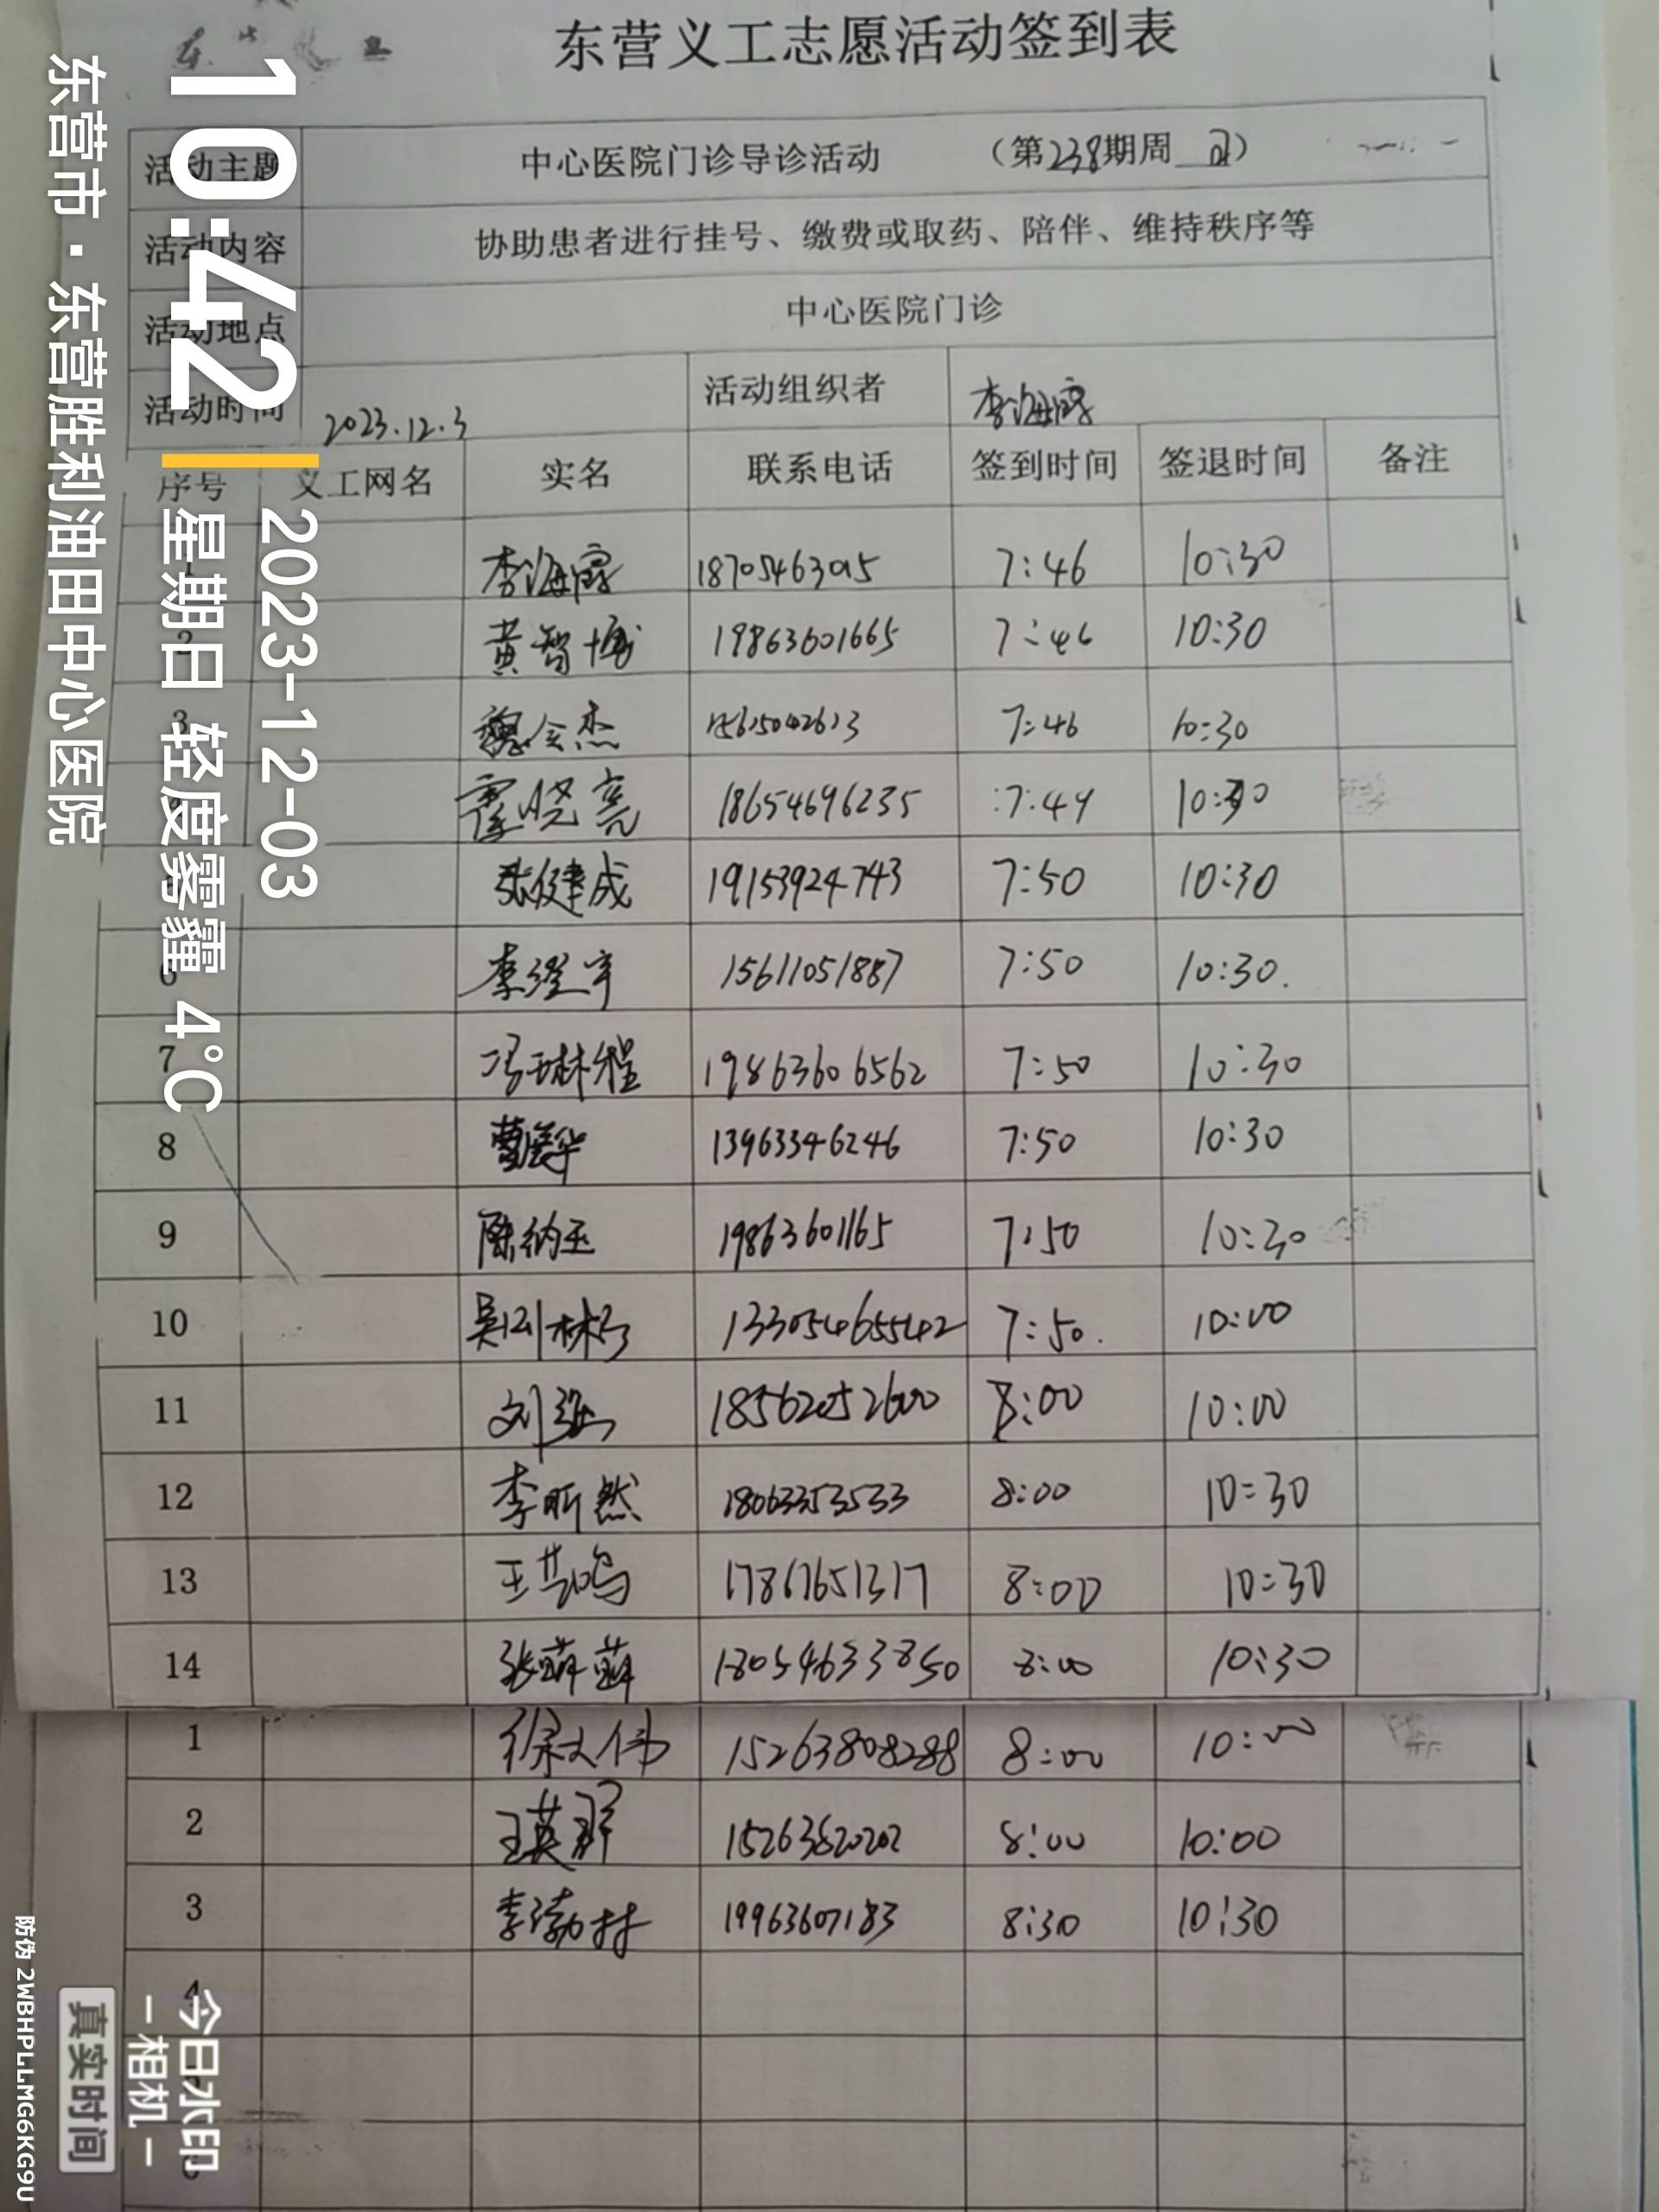 东营义工志愿活动签到表
活动主题 中心医院门诊导诊活动 （第238期周日）
活动内容 协助患者进行挂号、缴费或取药、陪伴、维持秩序等
活动地点 中心医院门诊
活动时间 2023.12.3 活动组织者 李海霞
序号 义工网名 实名 联系电话 签到时间 签退时间 备注
1 李海霞 7:46 10:30
2 黄智博 19863601665 7:46 10:30
3 魏会杰 15615042613 7:46 10:30
霍晓亮 18654696235 7:49 10:30
张健成 19153924743 7:50 10:30
6 李澄宇 15611051887 7:50 10:30.
7 冯琳程 19863606562 7:50 10:30
8 13963346246 7:50 10:30
9 陈纳玉 19863601165 7:50 10:30
10 13305465542 7:50. 10:00
11 18562052600 8:00 10:00
12 李昕然 18063353533 8:00 10:30
13 王艺鸣 17861651317 8:00 10:30
14 张萌萌 18054633850 8:00 10:30
1 徐文伟 15263808288 8:00 10:00
2 王英群 15263820202 8:00 10:00
3 李渤村 19963607183 8:30 10:30
4
10:42
2023-12-03
星期日 轻度雾霾 4°C
东营市·东营胜利油田中心医院
今日水印
－相机－
真实时间
防伪 2WBHPLLMG6KG9U